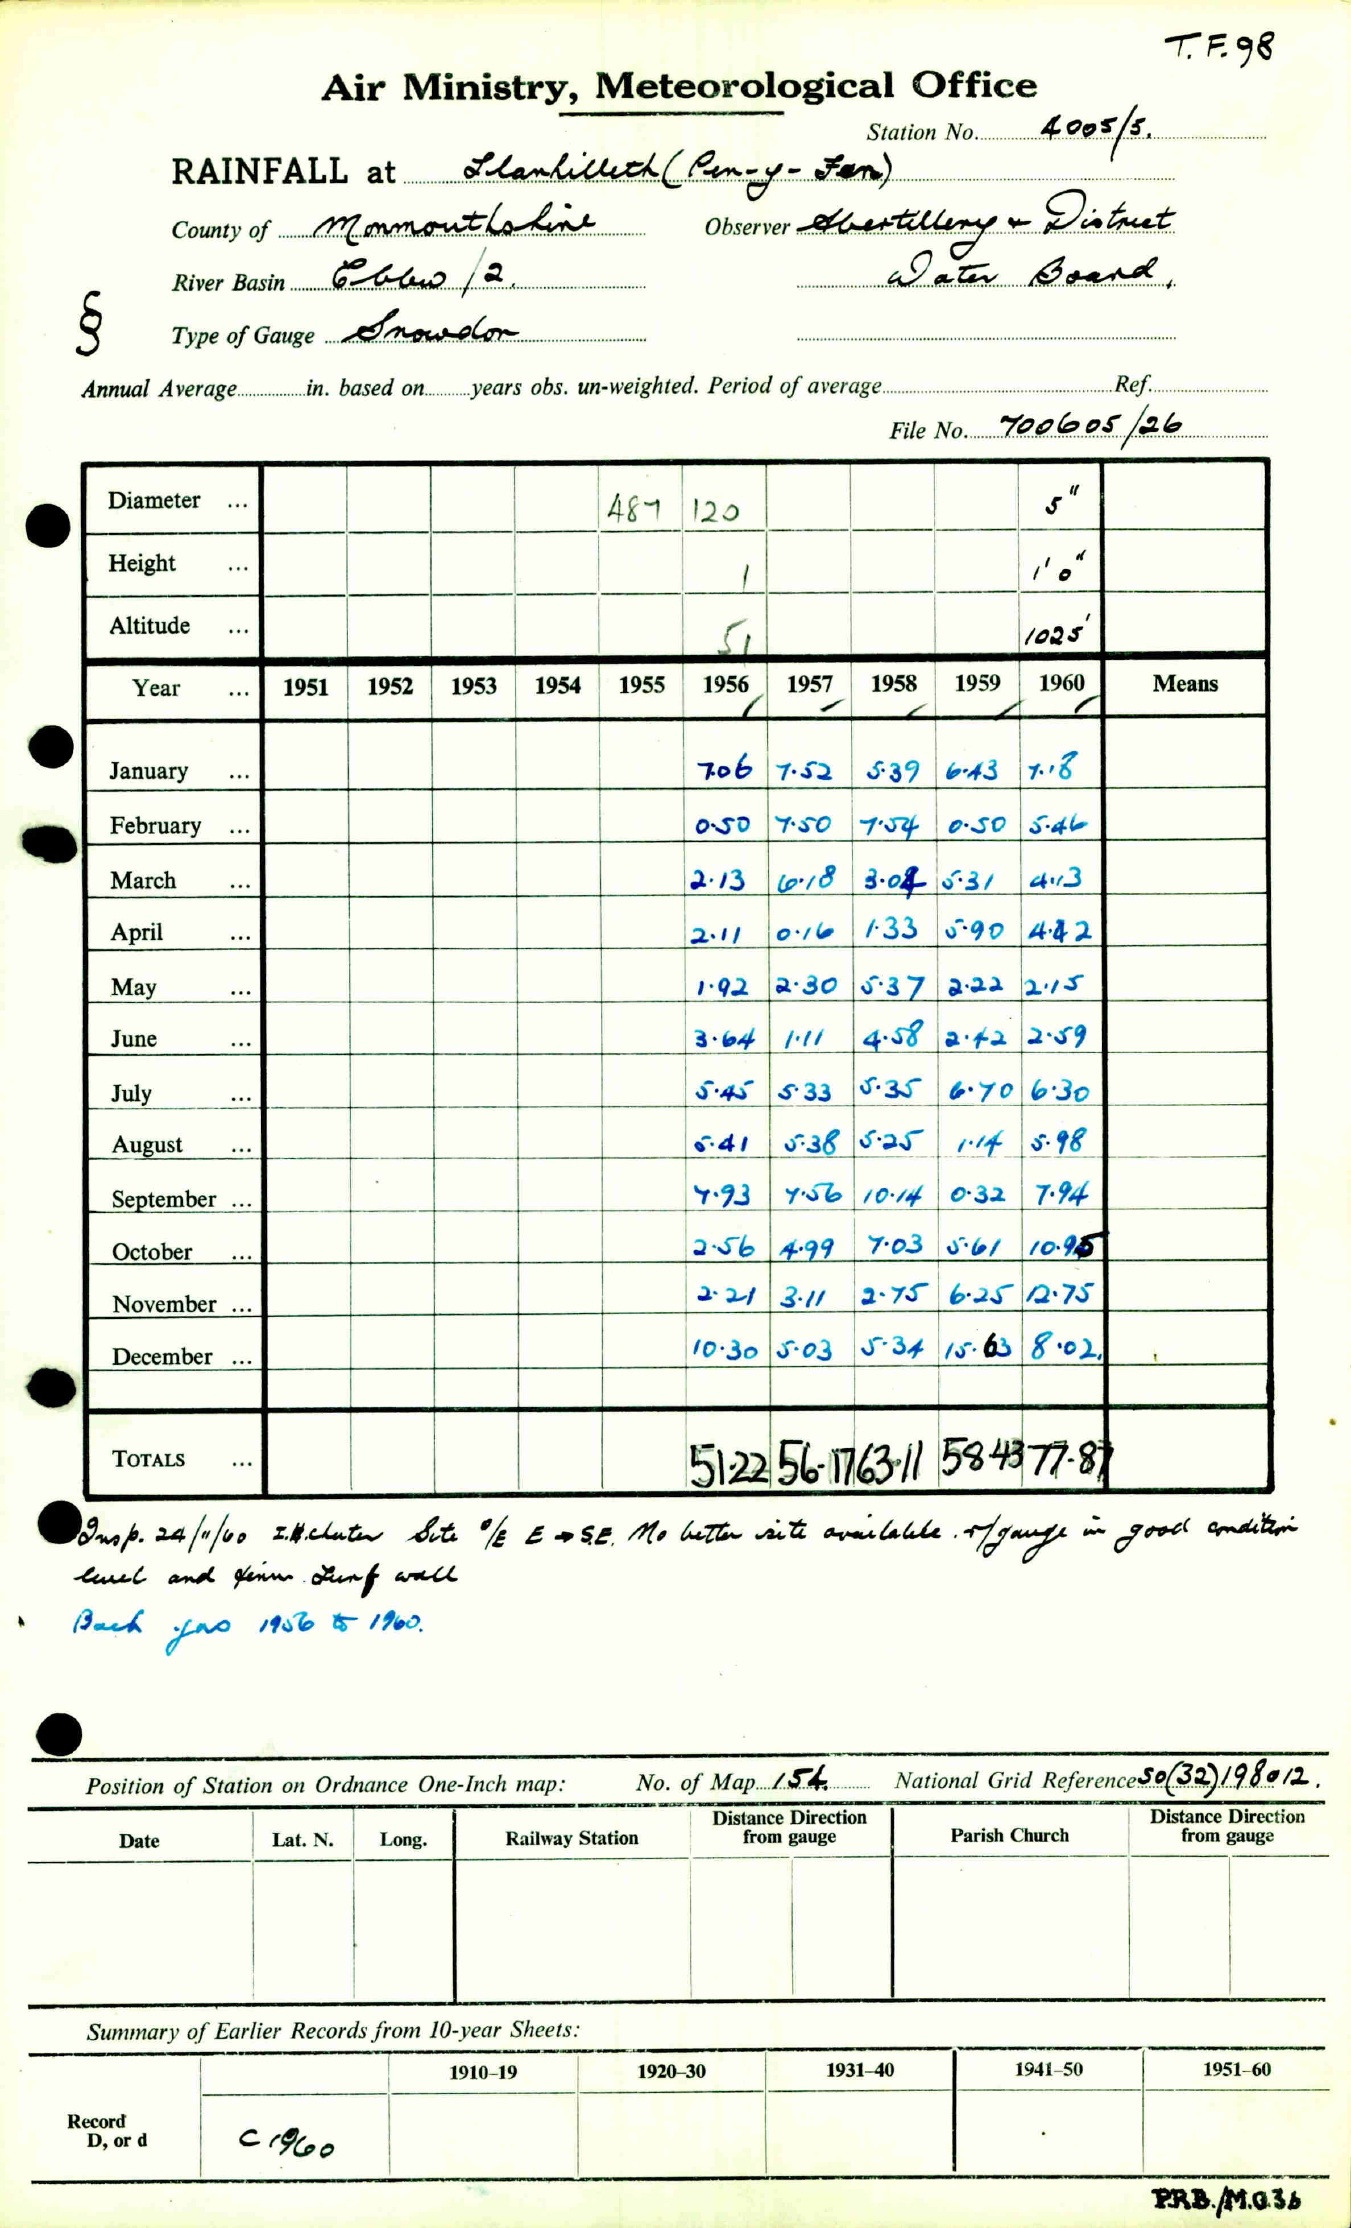 T.F.98
Air Ministry, Meteorological Office
Station No. 4005/5.
RAINFALL at Llanhilleth (Pen-y-Fan)
County of Monmouthshire Observer Abertillery & District
River Basin Ebbw /2. Water Board,
§ Type of Gauge Snowdon
Annual Average in. based on years obs. un-weighted. Period of average Ref.
File No. 700605/26
Diameter ... 487 120 5"
Height ... 1 1'0"
Altitude ... 51 1025'
Year ... 1951 1952 1953 1954 1955 1956 1957 1958 1959 1960 Means
January ... 7.06 7.52 5.39 6.43 7.18
February ... 0.50 7.50 7.54 0.50 5.46
March ... 2.13 6.18 3.04 5.31 4.13
April ... 2.11 0.16 1.33 5.90 4.42
May ... 1.92 2.30 5.37 2.22 2.15
June ... 3.64 1.11 4.58 2.42 2.59
July ... 5.45 5.33 5.35 6.70 6.30
August ... 5.41 5.38 5.25 1.14 5.98
September ... 7.93 7.56 10.14 0.32 7.94
October ... 2.56 4.99 7.03 5.61 10.95
November ... 2.21 3.11 2.75 6.25 12.75
December ... 10.30 5.03 5.34 15.63 8.02.
TOTALS ... 51.22 56.17 63.11 58.43 77.87
Insp. 24/11/60 Site o/E E → S.E. No better site available. r/gauge in good condition
level and firm. Turf wall
Back yrs 1956 to 1960.
Position of Station on Ordnance One-Inch map: No. of Map 154. National Grid Reference SO(32)198012.
Date Lat. N. Long. Railway Station Distance Direction from gauge Parish Church Distance Direction from gauge
Summary of Earlier Records from 10-year Sheets:
1910–19 1920–30 1931–40 1941–50 1951–60
Record
D, or d
C 1960
P.R.B./M.O.36